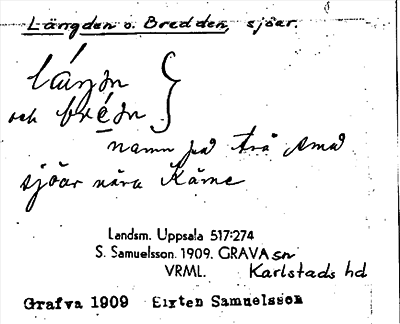 Längden o. Bredden, sjöar.
låŋdn }
och bre̱dn
namn på två små
sjöar nära Kärne
Landsm. Uppsala 517:274
S. Samuelsson. 1909. GRAVA sn
VRML. Karlstads hd
Grafva 1909 Sixten Samuelsson